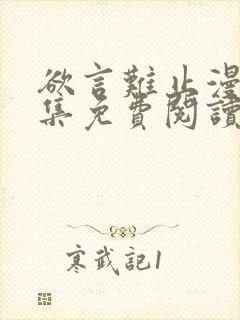 欲言難止漫
集免費閱讀
寒武記1